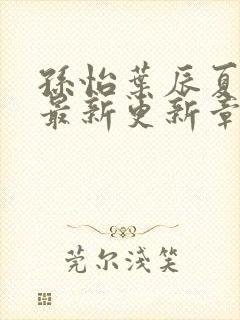 孫怡葉辰夏
最新更新章
莞尔淺笑